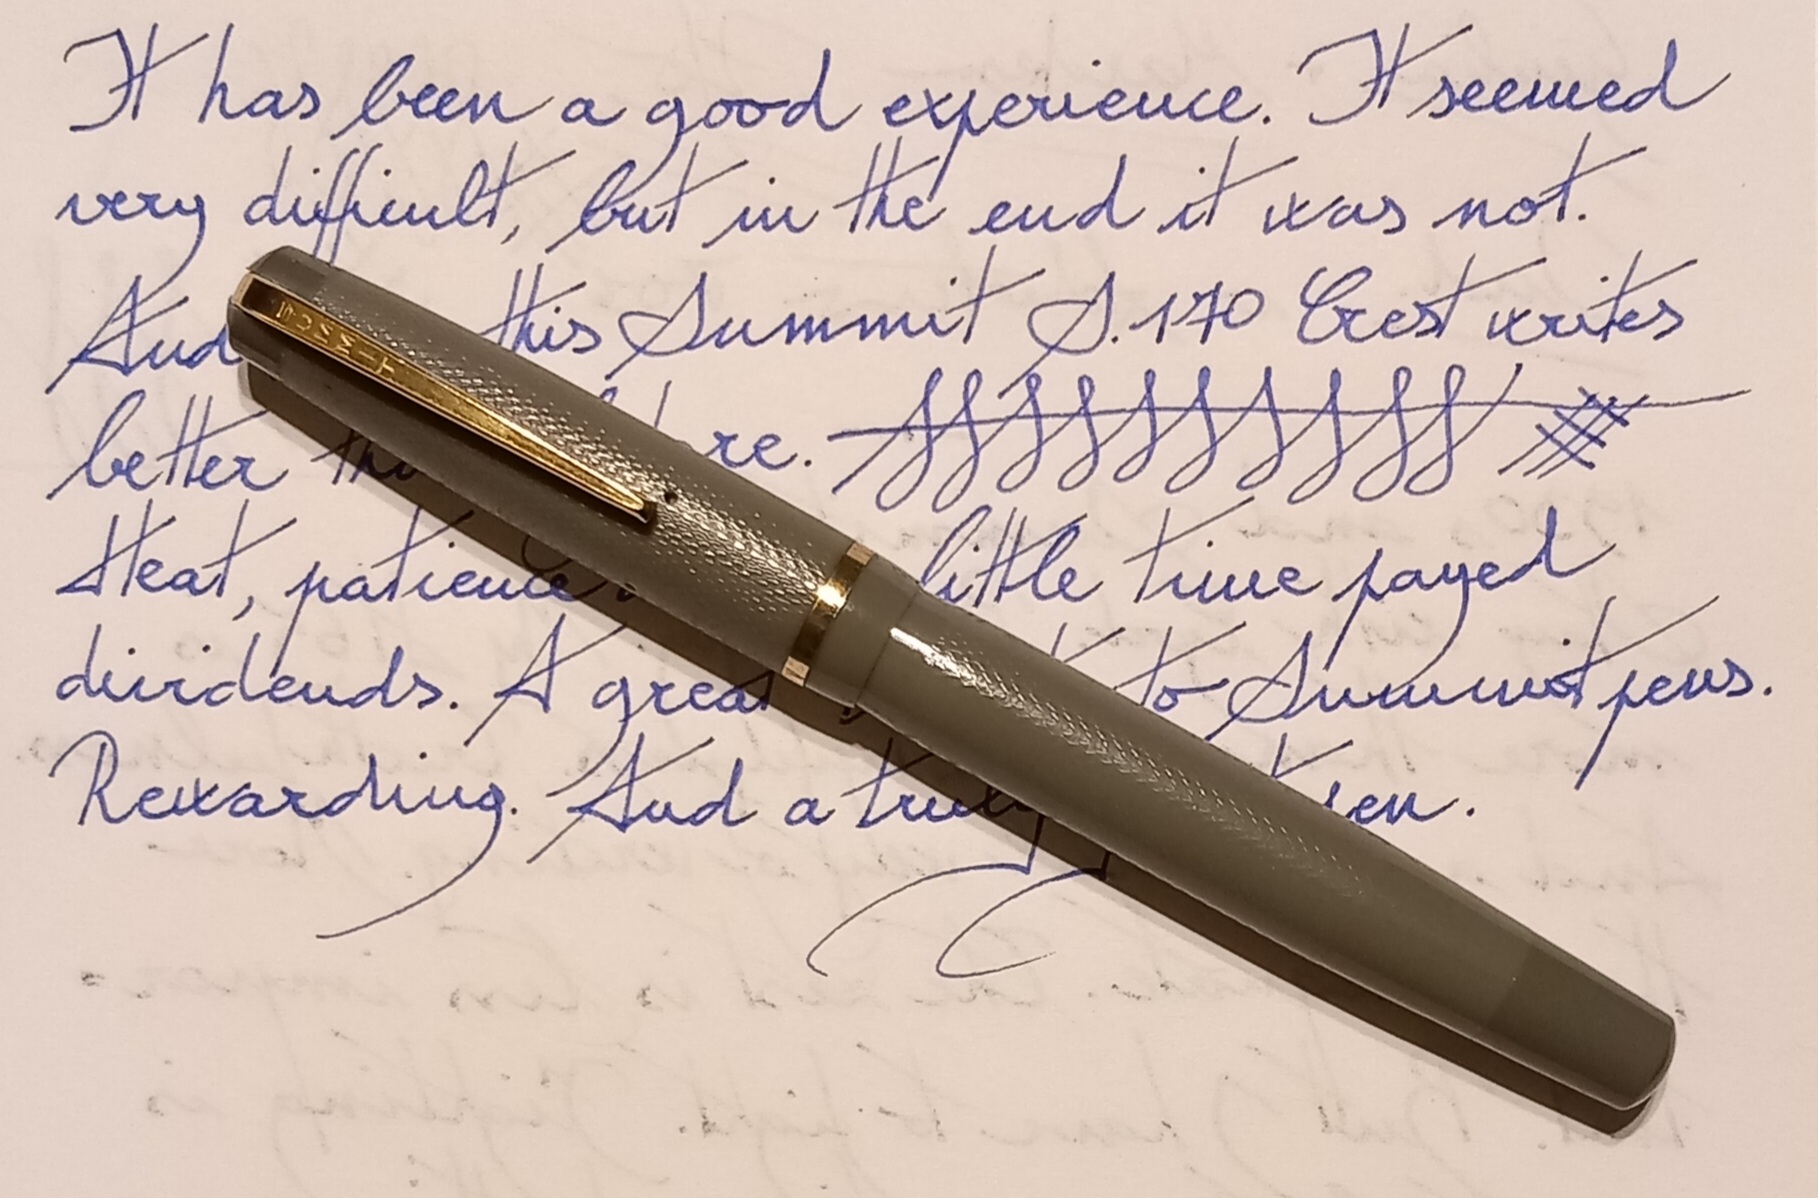 It has been a good experience. It seemed
very difficult, but in the end it was not.
And this Summit S.170 Crest writes
better
Heat, patience little time payed
dividends. A great to Summit pens.
Rewarding. And a
SUMMIT